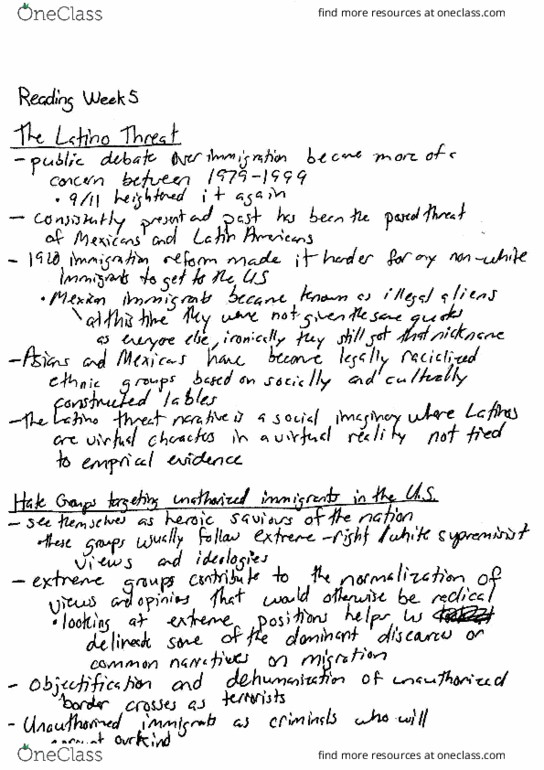 OneClass
find more resources at oneclass.com
Reading Week 5
The Latino Threat
- public debate over immigration became more of a
concern between 1979-1999
• 9/11 heightened it again
- consistently present and past has been the posed threat
of Mexicans and Latin Americans
- 1920 immigration reform made it harder for any non-white
immigrants to get to the US
• Mexican immigrants became known as illegal aliens
\ at this time they were not given the same quotas
as everyone else, ironically they still got that nickname
- Asians and Mexicans have become legally racialized
ethnic groups based on socially and culturally
constructed lables
- The Latino threat narrative is a social imaginary where Latinos
are virtual characters in a virtual reality not tied
to emprical evidence
Hate Groups targeting unathorized immigrants in the U.S.
- see themselves as heroic saviours of the nation
• these groups usually follow extreme-right / white supremisist
views and ideologies
- extreme groups contribute to the normalization of
views and opinions that would otherwise be radical
• looking at extreme positions helps us
delineate some of the dominant discourses or
common narratives on migration
- Objectification and dehumanization of unauthorized
border crosses as terrorists
- Unauthorized immigrants as criminals who will
our kind
OneClass
find more resources at oneclass.com